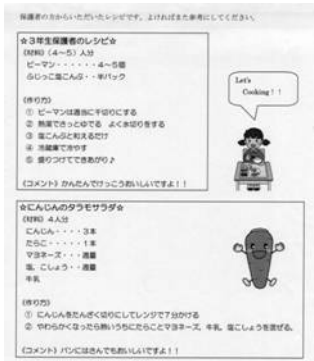 保護者の方からいただいたレシピです。よければまた参考にしてください。
☆3年生保護者のレシピ☆
《材料》(4～5)人分
ピーマン・・・・・・4～5個
ふじっこ塩こんぶ・・半パック
《作り方》
① ピーマンは適当に千切りにする
② 熱湯でさっとゆでる よく水切りをする
③ 塩こんぶと和えるだけ
④ 冷蔵庫で冷やす
⑤ 盛りつけてできあがり♪
《コメント》かんたんでけっこうおいしいですよ！！
Let's
Cooking！！
☆にんじんのタラモサラダ☆
《材料》4人分
にんじん・・・・3本
たらこ・・・・・1本
マヨネーズ・・・適量
塩、こしょう・・適量
牛乳
《作り方》
① にんじんをたんざく切りにしてレンジで7分かける
② やわらかくなったら熱いうちにたらことマヨネーズ、牛乳、塩こしょうを混ぜる。
《コメント》パンにはさんでもおいしいですよ！